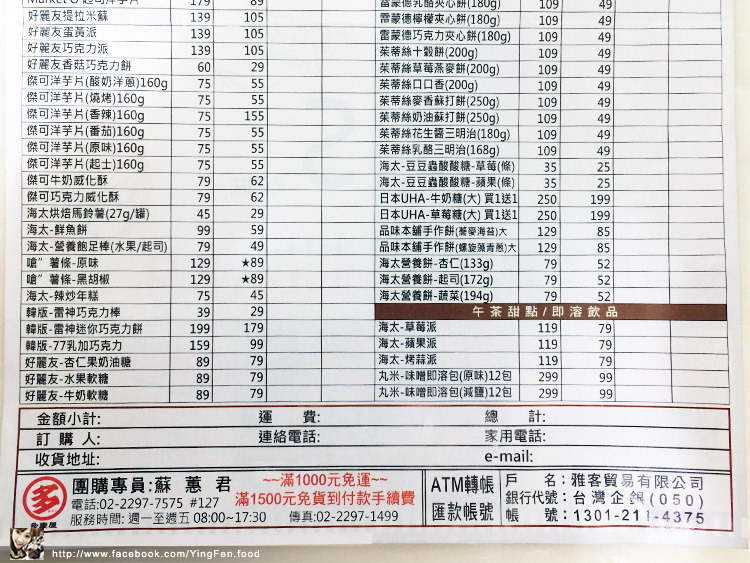 Market O 起司洋芋片 179 89
好麗友提拉米蘇 139 105
好麗友蛋黃派 139 105
好麗友巧克力派 139 105
好麗友香菇巧克力餅 60 29
傑可洋芋片(酸奶洋蔥)160g 75 55
傑可洋芋片(燒烤)160g 75 55
傑可洋芋片(香辣)160g 75 155
傑可洋芋片(番茄)160g 75 55
傑可洋芋片(原味)160g 75 55
傑可洋芋片(起士)160g 75 55
傑可牛奶威化酥 79 62
傑可巧克力威化酥 79 62
海太烘焙馬鈴薯(27g/罐) 45 29
海太-鮮魚餅 99 59
海太-營養飽足棒(水果/起司) 79 49
嗆”薯條-原味 129 ★89
嗆”薯條-黑胡椒 129 ★89
海太-辣炒年糕 75 45
韓版-雷神巧克力棒 39 29
韓版-雷神迷你巧克力餅 199 179
韓版-77乳加巧克力 159 99
好麗友-杏仁果奶油糖 89 79
好麗友-水果軟糖 89 79
好麗友-牛奶軟糖 89 79
雷蒙德乳酪夾心餅(180g) 109 49
雷蒙德檸檬夾心餅(180g) 109 49
雷蒙德巧克力夾心餅(180g) 109 49
茱蒂絲十穀餅(200g) 109 49
茱蒂絲草莓燕麥餅(200g) 109 49
茱蒂絲口口香(200g) 109 49
茱蒂絲麥香蘇打餅(250g) 109 49
茱蒂絲奶油蘇打餅(250g) 109 49
茱蒂絲花生醬三明治(180g) 109 49
茱蒂絲乳酪三明治(168g) 109 49
海太-豆豆蟲酸酸糖-草莓(條) 35 25
海太-豆豆蟲酸酸糖-蘋果(條) 35 25
日本UHA-牛奶糖(大) 買1送1 250 199
日本UHA-草莓糖(大) 買1送1 250 199
品味本舖手作餅(蕎麥海苔)大 129 85
品味本舖手作餅(螺旋藻青蔥)大 129 85
海太營養餅-杏仁(133g) 79 52
海太營養餅-起司(172g) 79 52
海太營養餅-蔬菜(194g) 79 52
午茶甜點/即溶飲品
海太-草莓派 119 79
海太-蘋果派 119 79
海太-烤蒜派 119 79
丸米-味噌即溶包(原味)12包 299 99
丸米-味噌即溶包(減鹽)12包 299 99
金額小計: 運 費: 總 計:
訂 購 人: 連絡電話: 家用電話:
收貨地址: e-mail:
團購專員:蘇 蕙 君
電話:02-2297-7575 #127
服務時間: 週一至週五 08:00~17:30 傳真:02-2297-1499
~~滿1000元免運~~
滿1500元免貨到付款手續費
ATM轉帳
匯款帳號
戶 名：雅客貿易有限公司
銀行代號：台灣企銀(050)
帳 號：1301-211-4375
http://www.facebook.com/YingFen.food